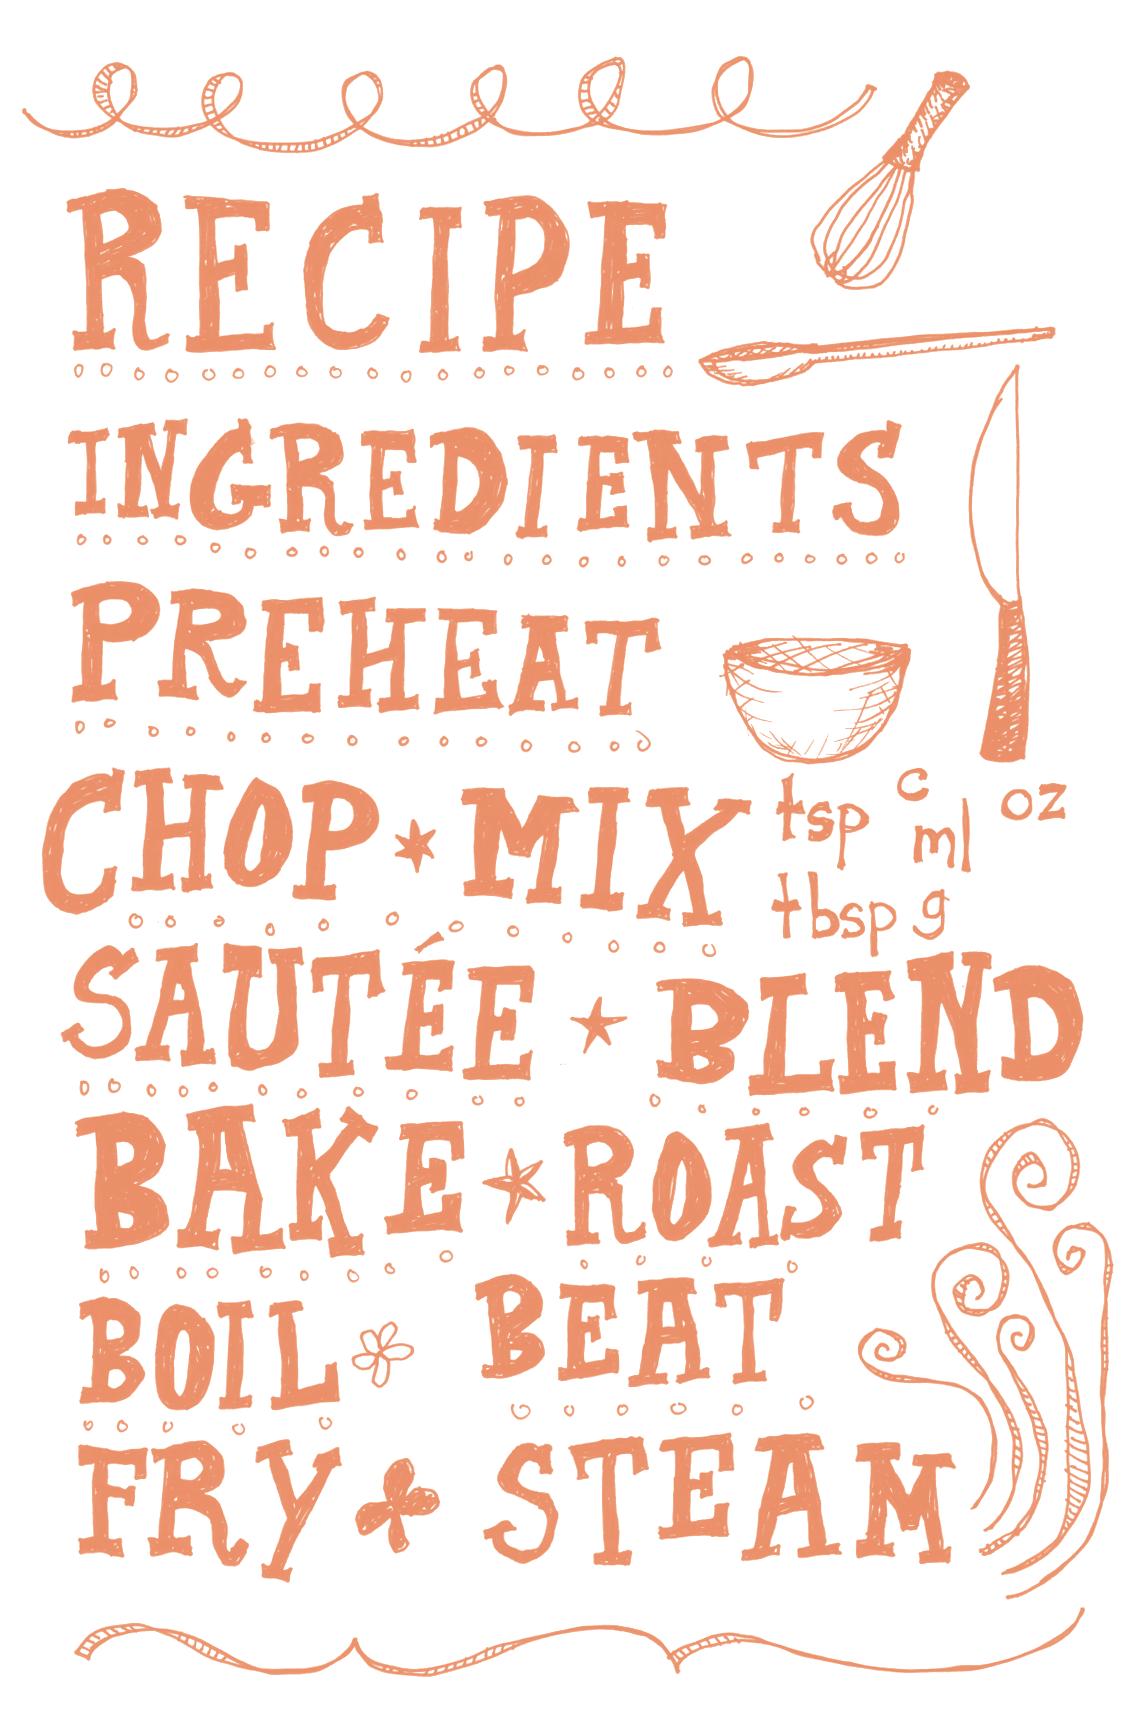 RECIPE
INGREDIENTS
PREHEAT
CHOP MIX
tsp c ml oz
tbsp g
SAUTÉE BLEND
BAKE ROAST
BOIL BEAT
FRY STEAM